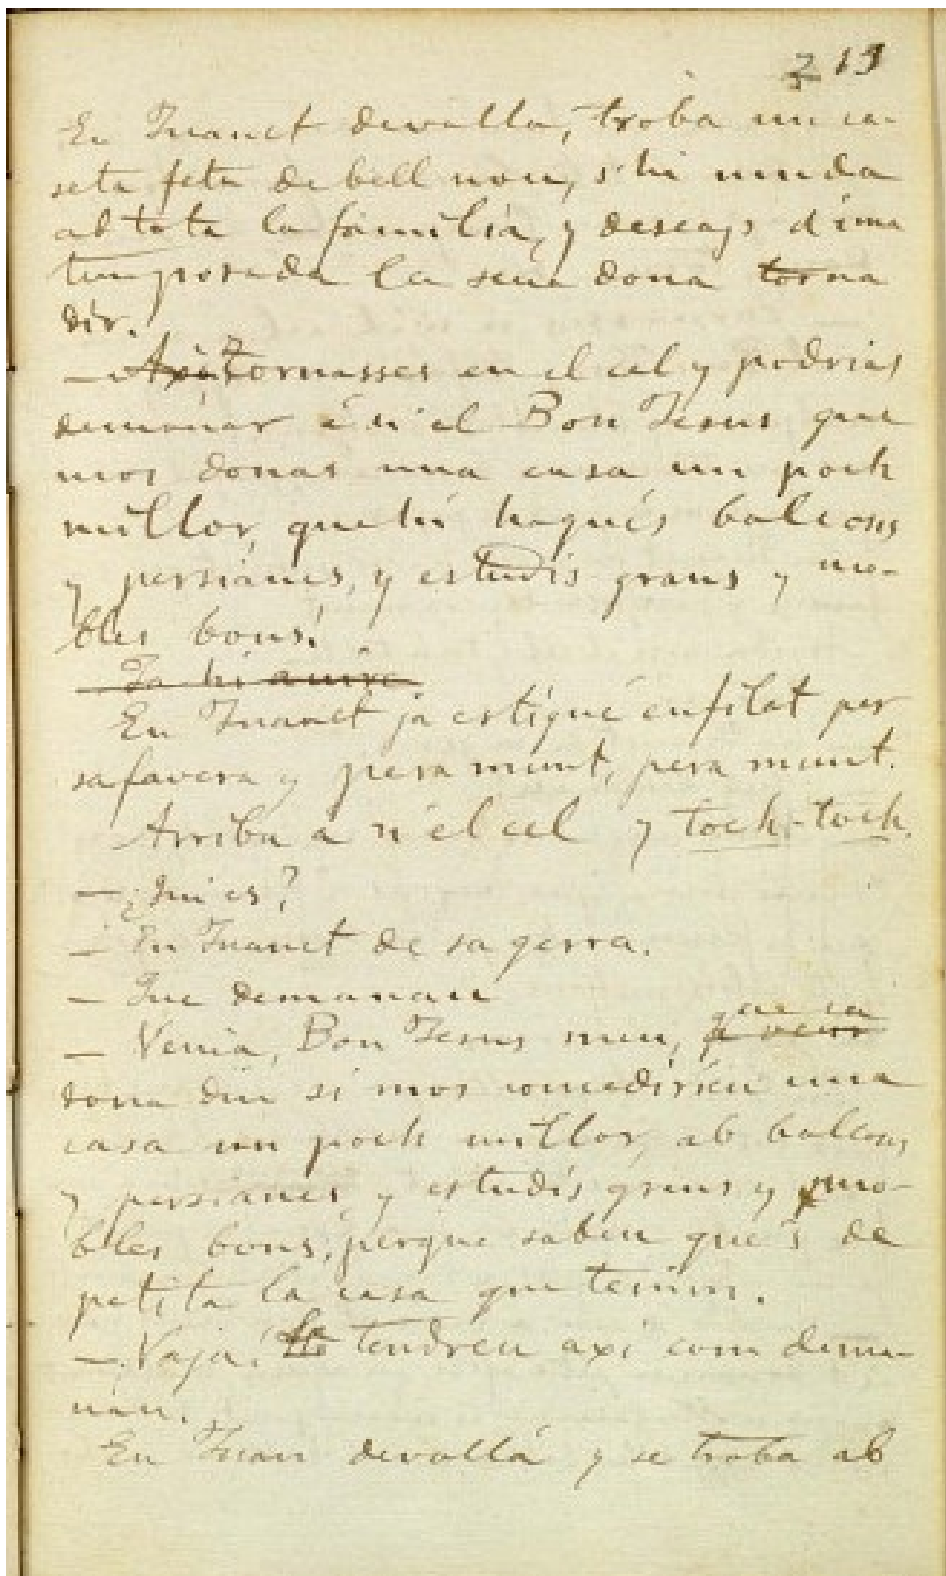 219
En Juanet devalla, troba un ca-
seta feta de bell nou, s'hi muda
ab tota la familia, y deseays d'una
temporada la seua dona torna
dir.
— Axi tornasses en el cel y podrias
demanar á n'el Bon Jesus que
mos donas una casa un poch
millor, que hi hagués balcons
y persianes, y estudis grans y mo-
bles bons!
Ja hi aniré
En Juanet ja estigué enfilat per
sa favera y per amunt, per amunt.
Arriba a n'el cel y toch-toch.
— ¿Qui es?
— En Juanet de sa gerra.
— Que demanau
— Venia, Bon Jesus meu, que sa
dona diu si mos concediríeu una
casa un poch millor, ab balcons,
y persianes, y estudis grans y mo-
bles bons, perque sabeu que's de
petita la casa que tenim.
— Vaja! La tendreu axi com dema-
nau.
En Juan devallá y se troba ab